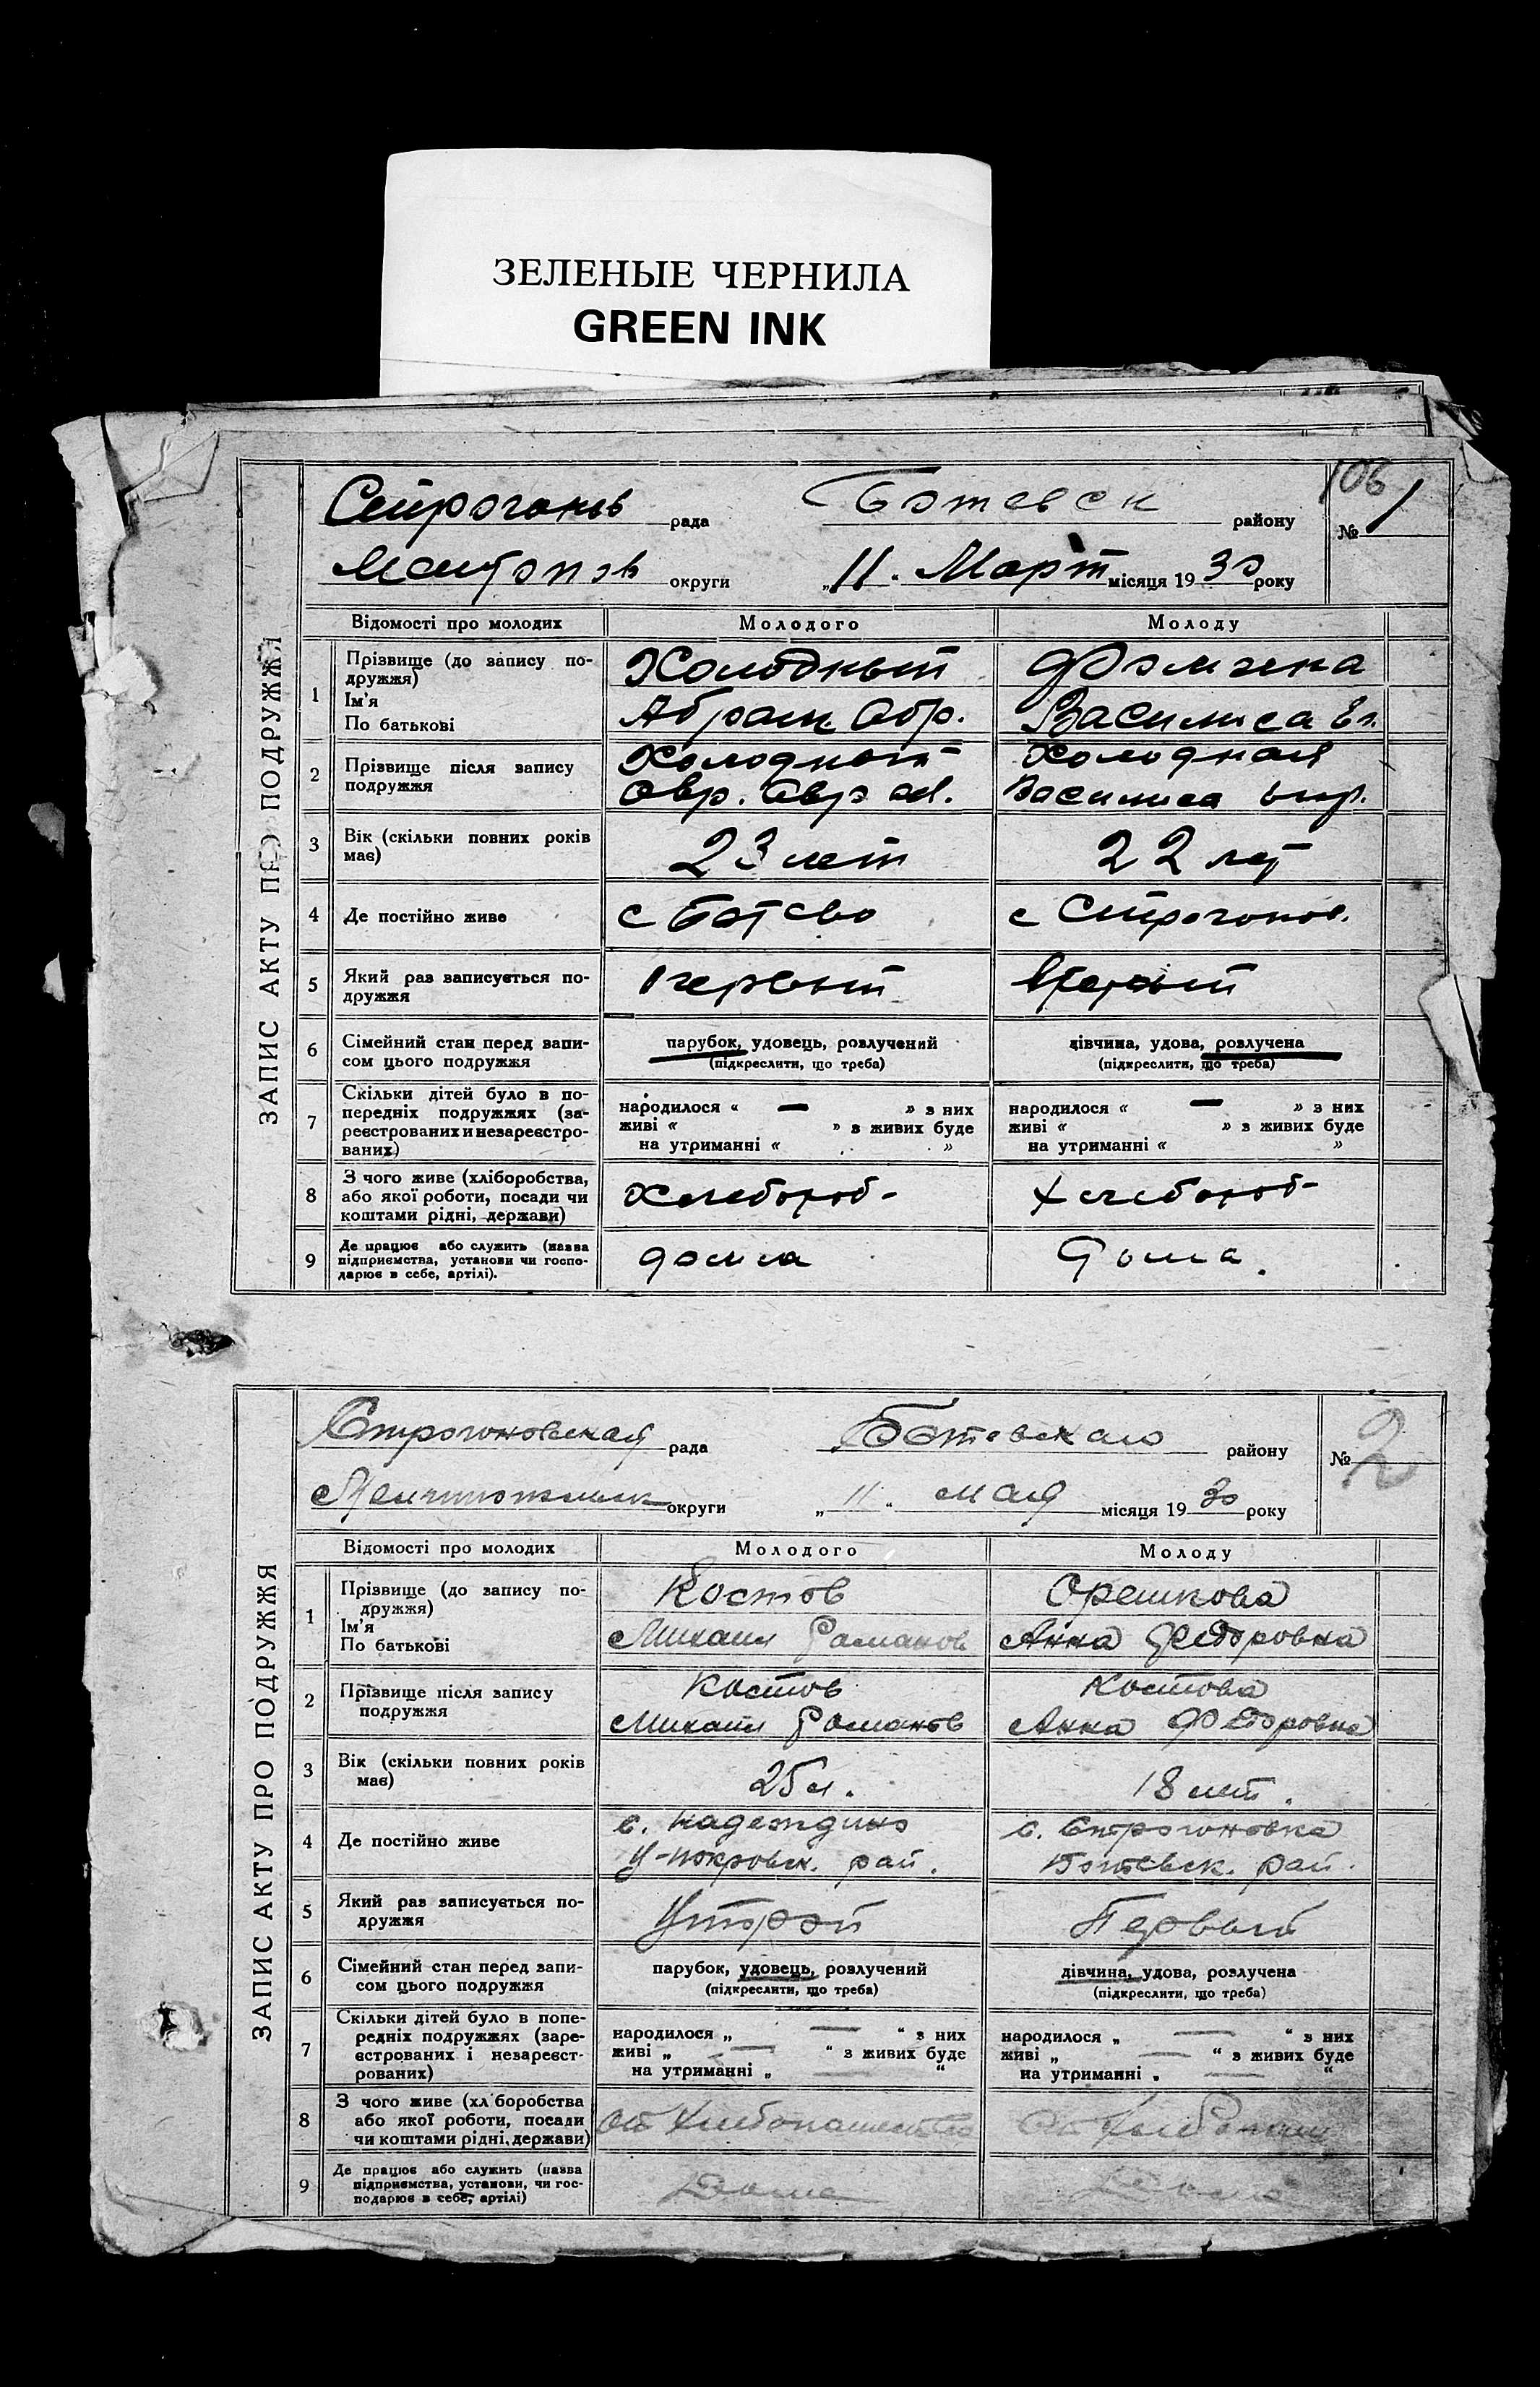 ЗЕЛЕНЫЕ ЧЕРНИЛА
GREEN INK
106
ЗАПИС АКТУ ПРО ПОДРУЖЖЯ
Строганов рада Ботевск району № 1
округи „11“ Март місяця 1930 року
Відомості про молодих Молодого Молоду
1 Прізвище (до запису по-
дружжя)
Ім'я
По батькові
Холодный Фомичена
Абрам Абр. Василиса
2 Прізвище після запису
подружжя
Холодный Холодная
Авр. Василиса
3 Вік (скільки повних років
має)
23 лет 22 лет
4 Де постійно живе с Ботево с Строганов.
5 Який раз записується по-
дружжя
первый
6 Сімейний стан перед запи-
сом цього подружжя
парубок, удовець, розлучений дівчина, удова, розлучена
(підкреслити, що треба) (підкреслити, що треба)
7 Скільки дітей було в по-
передніх подружжях (за-
реєстрованих и незареєстро-
ваних)
народилося « — » з них народилося « — » з них
живі « » з живих буде живі « » з живих буде
на утриманні « » на утриманні « »
8 З чого живе (хліборобства,
або якої роботи, посади чи
коштами рідні, держави)
Хлебороб- хлебороб-
9 Де працює або служить (назва
підприємства, установи чи госпо-
дарює в себе, артілі).
дома Дома.
ЗАПИС АКТУ ПРО ПОДРУЖЖЯ
Строгоновская рада Ботевского району № 2
округи „11“ мая місяця 1930 року
Відомості про молодих Молодого Молоду
1 Прізвище (до запису по-
дружжя)
Ім'я
По батькові
Костов Орешкова
Михаил Романов Анна Федоровна
2 Прізвище після запису
подружжя
Костов Костова
Михаил Романов Анна Федоровна
3 Вік (скільки повних років
має)
25 л. 18 лет.
4 Де постійно живе
с. Надеждино с. Строгоновка
Ц-покровск. рай. Ботевск. рай.
5 Який раз записується по-
дружжя
Уторой Первый
6 Сімейний стан перед запи-
сом цього подружжя
парубок, удовець, розлучений дівчина, удова, розлучена
(підкреслити, що треба) (підкреслити, що треба)
7 Скільки дітей було в попе-
редніх подружжях (заре-
єстрованих і незареєст-
рованих)
народилося „ — “ з них народилося „ — “ з них
живі „ — “ з живих буде живі „ — “ з живих буде
на утриманні „ — “ на утриманні „ — “
8 З чого живе (хл боробства
або якої роботи, посади
чи коштами рідні, держави)
От От
9 Де працює або служить (назва
підприємства, установи, чи гос-
подарює в себе, артілі)
Дома Дома